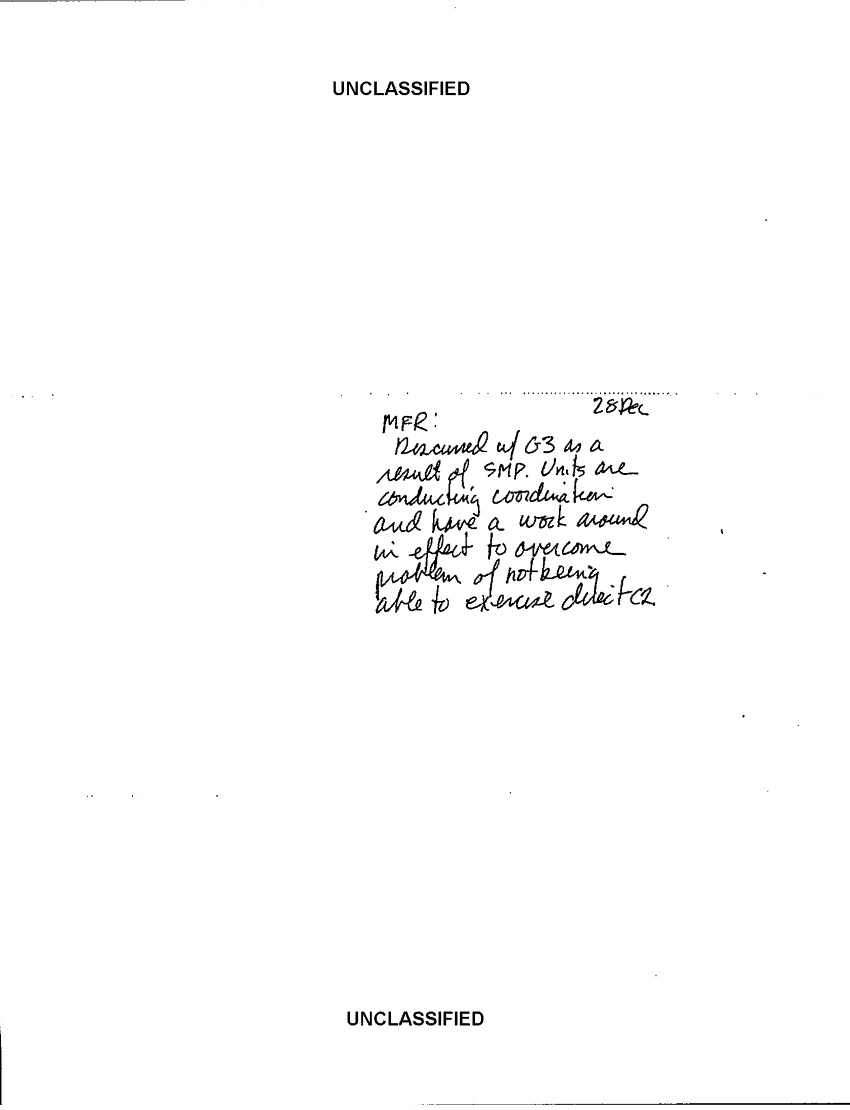 UNCLASSIFIED
28 Dec
MFR:
Discussed w/ G3 as a
result of SMP. Units are
conducting coordination
and have a work around
in effect to overcome
problem of not being
able to exercise direct C2
UNCLASSIFIED